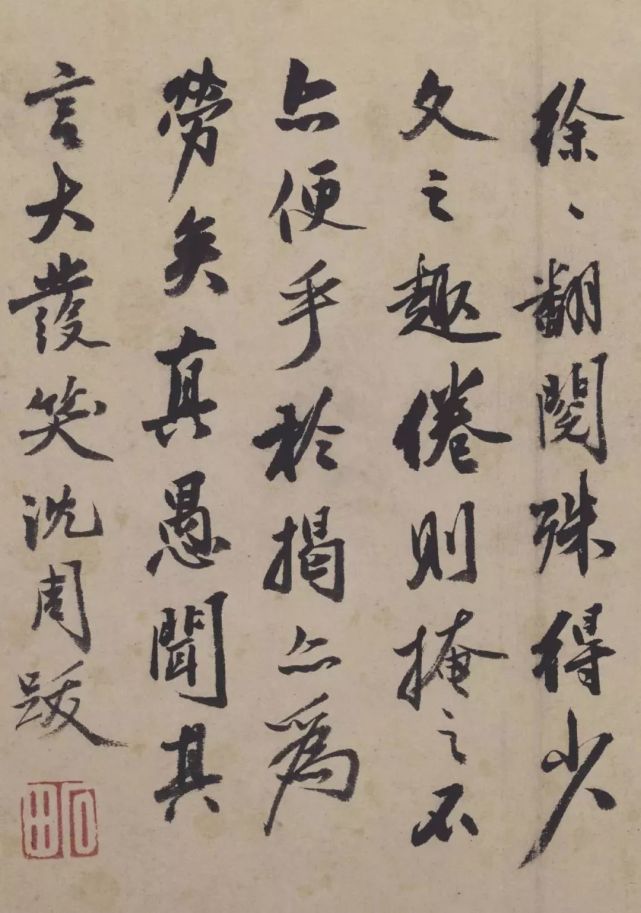 徐、翻閱殊得少
文之趣倦則掩之不
亦便乎於揭亦為
勞矣真愚聞其
言大發笑沈周跋
石田